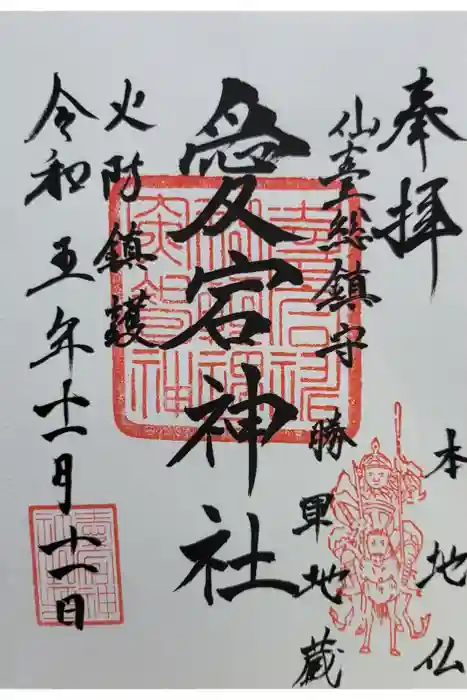 奉拝
本地仏
仙臺総鎮守
勝軍地蔵
愛宕神社
火防鎮護
令和五年十一月十一日